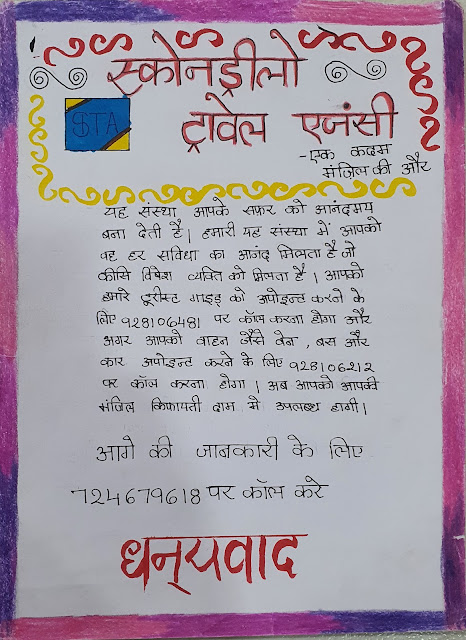 स्कोनड्रीलो
STA
ट्रावेल एजंसी
-एक कदम
मंज़िल की और
यह संस्था आपके सफ़र को आनंदमय
बना देती है। हमारी यह संस्था में आपको
वह हर सविधा का आनंद मिलता है जो
कीसि विषेश व्यक्ति को मिलता है। आपको
हमारे टूरीस्ट गाइड को अपोइन्ट करने के
लिए 928106481 पर कॉल करना होगा और
अगर आपको वाहन जैसे वेन, बस और
कार अपोइन्ट करने के लिए 928106212
पर कॉल करना होगा। अब आपको आपकी
मंजिल किफायती दाम मे उपलब्ध हागी।
आगे की जानकारी के लिए
724679618 पर कॉल करे
धन्यवाद